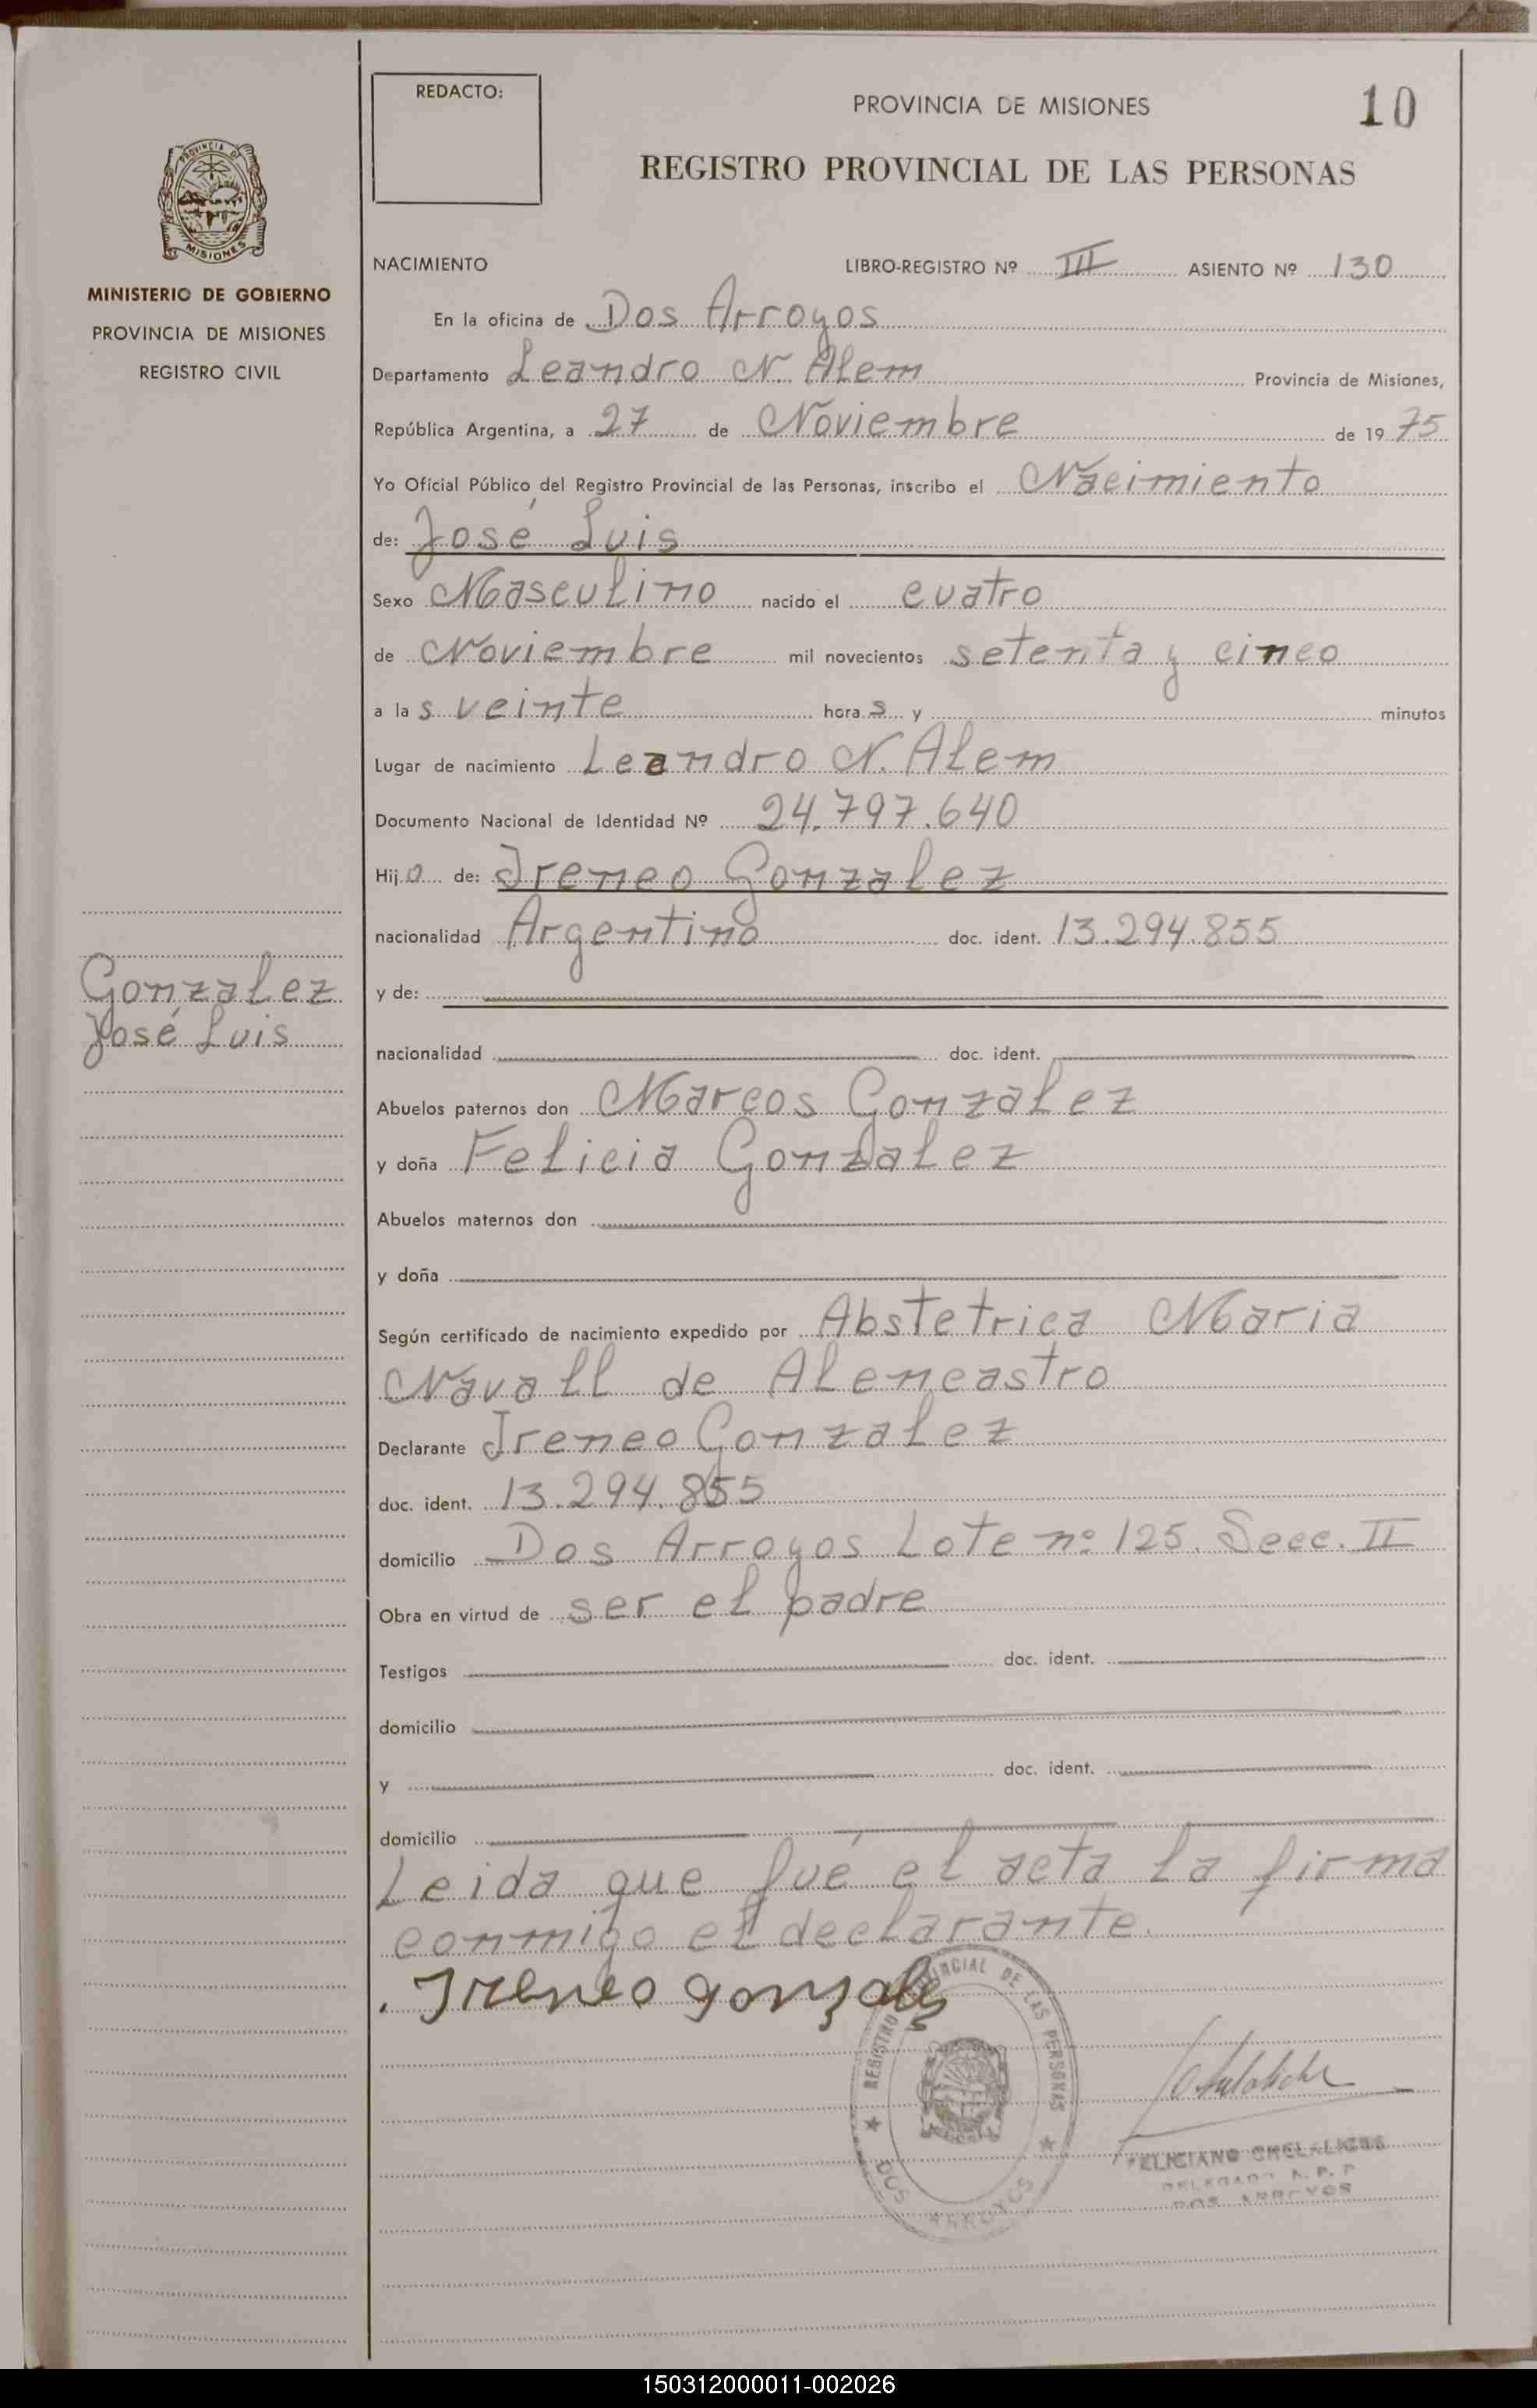 REDACTO:
PROVINCIA DE MISIONES
10
REGISTRO PROVINCIAL DE LAS PERSONAS
PROVINCIA DE
MISIONES
MINISTERIO DE GOBIERNO
PROVINCIA DE MISIONES
REGISTRO CIVIL
NACIMIENTO LIBRO-REGISTRO Nº III ASIENTO Nº 130
En la oficina de Dos Arroyos
Departamento Leandro N. Alem Provincia de Misiones,
República Argentina, a 27 de Noviembre de 1975
Yo Oficial Público del Registro Provincial de las Personas, inscribo el Nacimiento
de: José Luis
Sexo Masculino nacido el cuatro
de Noviembre mil novecientos setenta y cinco
a las veinte horas y minutos
Lugar de nacimiento Leandro N. Alem
Documento Nacional de Identidad Nº 24.797.640
Hijo de: Ireneo Gonzalez
nacionalidad Argentino doc. ident. 13.294.855
Gonzalez
José Luis
y de:
nacionalidad doc. ident.
Abuelos paternos don Marcos Gonzalez
y doña Felicia Gonzalez
Abuelos maternos don
y doña
Según certificado de nacimiento expedido por Abstetrica Maria
Navall de Alencastro
Declarante Ireneo Gonzalez
doc. ident. 13.294.855
domicilio Dos Arroyos Lote nº 125. Secc. II
Obra en virtud de ser el padre
Testigos doc. ident.
domicilio
y doc. ident.
domicilio
Leida que fué el acta la firma
conmigo el declarante.
Ireneo Gonzalez
REGISTRO PROVINCIAL DE LAS PERSONAS
DOS ARROYOS
FELICIANO CHELALICHE
DELEGADO R. P. P
DOS ARROYOS
150312000011-002026